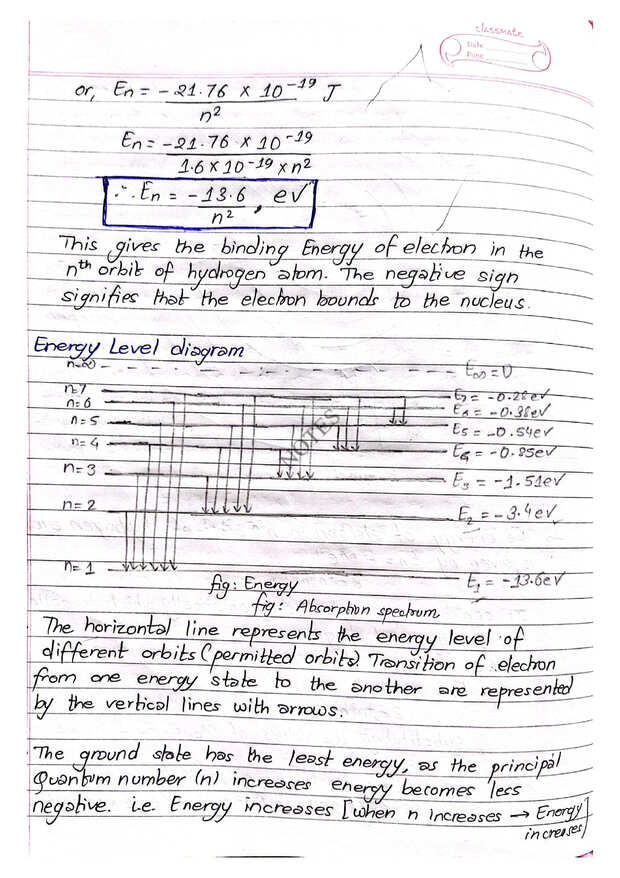 classmate
Date
Page
or, En = -21.76 × 10⁻¹⁹ J
n²
En = -21.76 × 10⁻¹⁹
1.6×10⁻¹⁹ × n²
∴ En = -13.6 , eV
n²
This gives the binding Energy of electron in the
nth orbit of hydrogen atom. The negative sign
signifies that the electron bounds to the nucleus.
Energy Level diagram
n=∞ E∞ = 0
n=7 E7 = -0.28eV
n=6 E6 = -0.38eV
n=5 E5 = -0.54eV
n=4 E4 = -0.85eV
NOTES
n=3 E3 = -1.51eV
n=2 E2 = -3.4eV
n=1 E1 = -13.6eV
fig: Energy
fig: Absorption spectrum
The horizontal line represents the energy level of
different orbits (permitted orbits). Transition of electron
from one energy state to the another are represented
by the vertical lines with arrows.
The ground state has the least energy, as the principal
Quantum number (n) increases energy becomes less
negative. i.e. Energy increases [when n increases → Energy
increases]